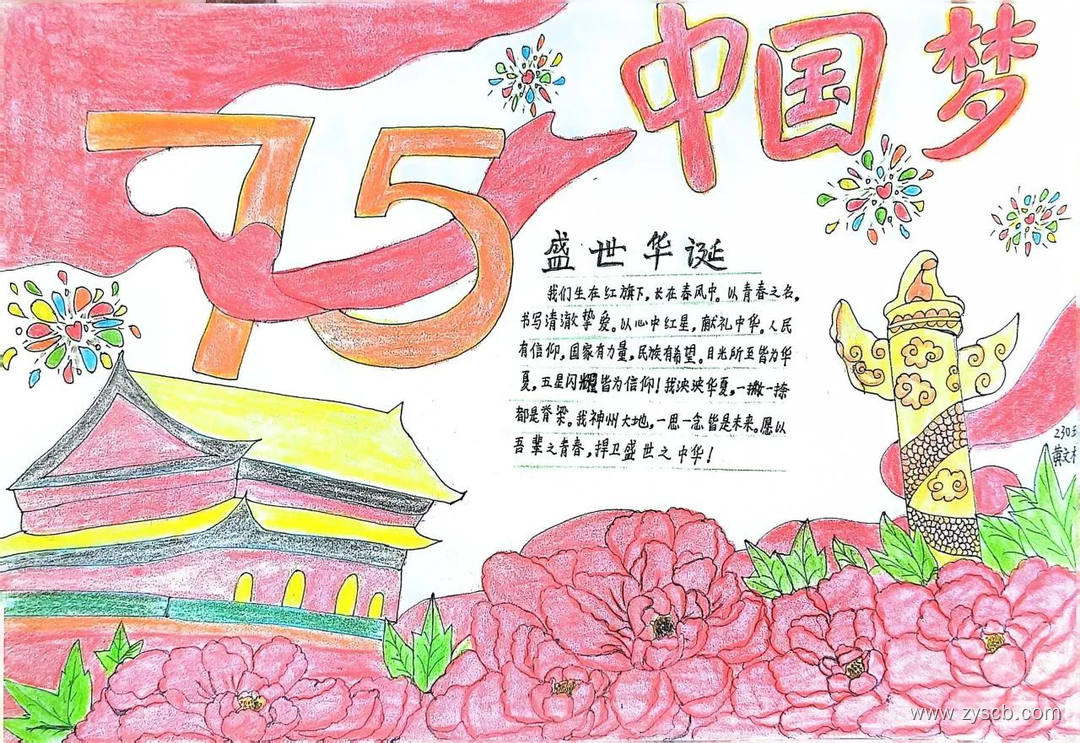 中国梦
75
盛世华诞
我们生在红旗下,长在春风中。以青春之名,
书写清澈挚爱。以心中红星,献礼中华。人民
有信仰,国家有力量,民族有希望。目光所至皆为华
夏,五星闪耀皆为信仰!我泱泱华夏,一撇一捺
都是脊梁。我神州大地,一思一念皆是未来。愿以
吾辈之青春,捍卫盛世之中华!
230
黄文
www.zyscb.com